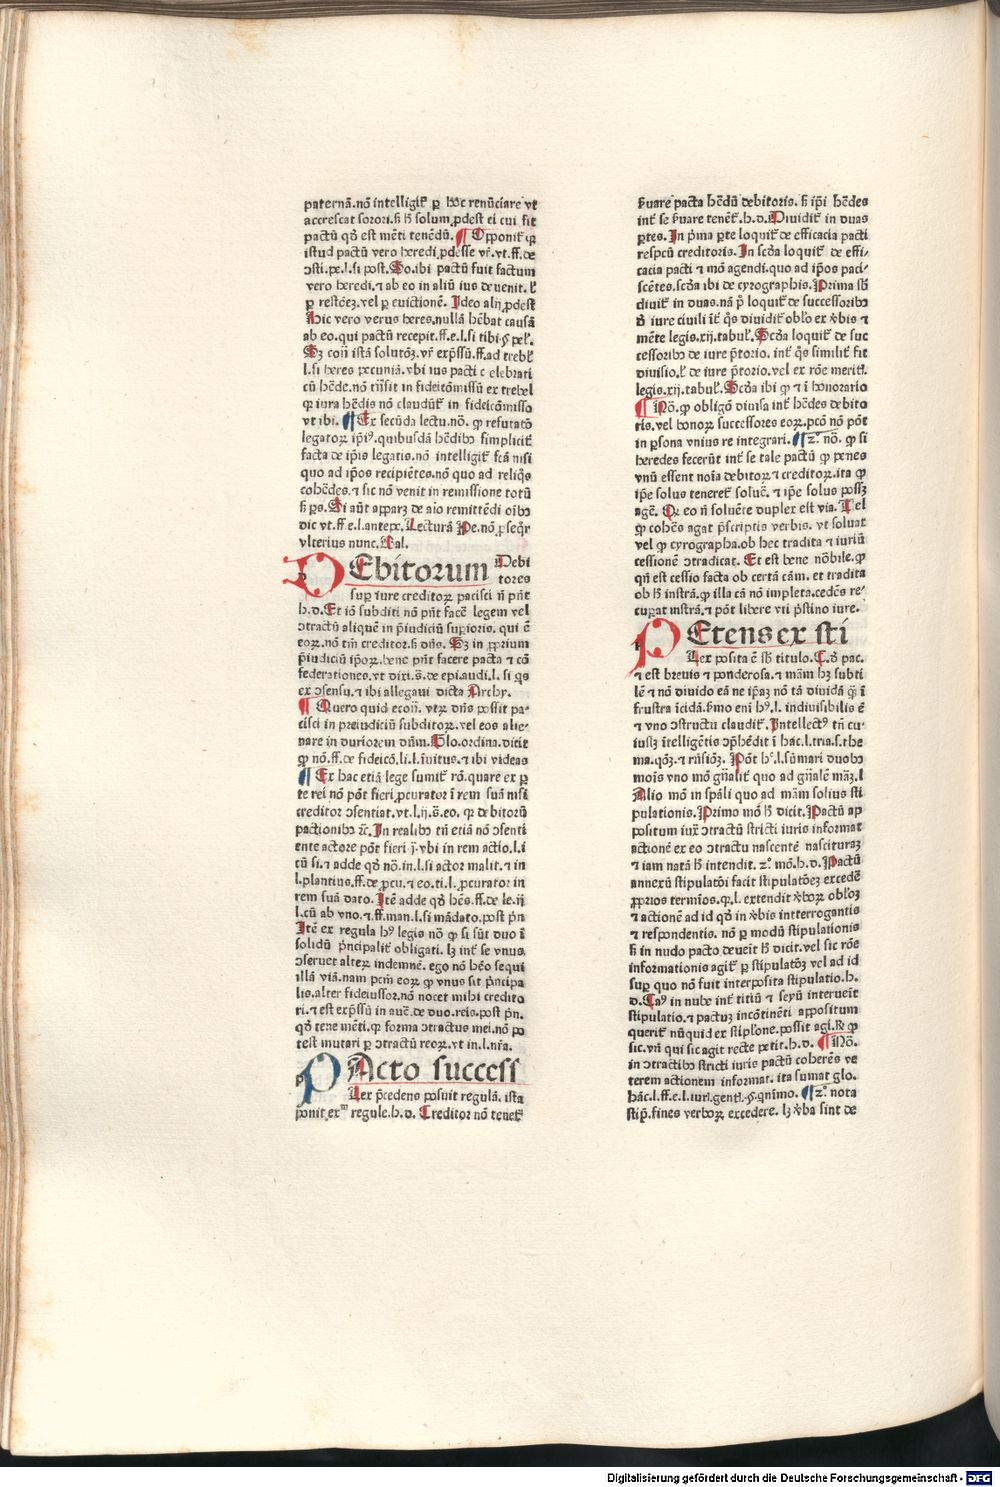 paternā.nō intelligit̄ ꝑ hoc renūciare vt
accrescat sorori.s̄ h̄ solum ꝓdest ei cui fit
pactū qd̄ est mēti tenēdū. ¶ Opponit̄ ꝙ
istud pactū vero heredi ꝓdesse vr̄.vt.ff.de
ↄsti.pe.l.si post. So.ibi pactū fuit factum
vero heredi.⁊ ab eo in aliū ius deuenit. ł
Ideo alij ꝓdest
Hic vero verus heres.nullā hēbat causā
ab eo.qui pactū recepit.ff.e.l.si tibi.§.
l.si heres pecuniā.vbi ius pacti celebrati
cū hēde.nō trāsit in fideicōmissū ex trebel
ꝙ iura hēdis nō claudūt̄ in fideicōmisso
vt ibi. ¶ Ex secūda lectu.nō. ꝙ refutatō
legatoꝝ ip̄iꝰ.quibusdā hēdibꝰ simplicit̄
facta de ip̄is legatis.nō intelligit̄ fcā nisi
quo ad ip̄os recipiētes.nō quo ad reliq̄s
cohēdes.⁊ sic nō venit in remissione totū
dic vt.ff.e.l.antepe. Lecturā Pe.nō ꝓseq̄r
vlterius nunc. Bal.
DEbitorum Debi
tores
sup iure creditoꝝ pacisci nō pn̄t
h.d. Et iō subditi nō pn̄t facere legem vel
ↄtractū aliquē in p̄iudiciū supioris. qui ē
eoꝝ.nō tm̄ creditor.s̄ dn̄s. Sꝫ in ꝓprium
p̄iudiciū ip̄oꝝ.bene pn̄t facere pacta ⁊ cō
federationes.vt dixi.s̄.de epi.audi.l. si q̄s
ex ↄsensu.⁊ ibi allegaui dicta Archy.
¶ Quero quid econ̄. vtꝝ dn̄s possit pa⸗
cisci in preiudiciū subditoꝝ.vel eos alie⸗
nare in duriorem dn̄m. Glo.ordina.dicit
ꝙ nō.ff.de fideicō.li.l.īuitus.⁊ ibi videas
¶ Ex hac etiā lege sumit̄ rō.quare ex ꝑ
te rei nō pōt fieri ꝓcurator ī rem suā nisi
creditor ↄsentiat.vt.l.ij.s̄.eo. ꝙ debitorū
pactionibꝰ ⁊c. In realibꝰ tn̄ etiā nō ↄsenti
ente actore pōt fieri ꝯ.vbi in rem actio.l.i
cū si.⁊ adde qd̄ nō.in.l.si actor malit.⁊ in
l.plantius.ff.de ꝓcu.⁊ eo.ti.l.ꝓcurator in
rem suā dato. Itē adde qd̄ hēs.ff.de le.ij
l.cū ab vno.⁊.ff.man.l.si mādato.post p̄n
Itē ex regula hꝰ legis nō ꝙ si sūt duo ī
solidū p̄ncipalit̄ obligati. lꝫ int̄ se vnus
ↄseruet alteꝝ indemnē. ego nō hēo sequi
illā viā.nam pcm̄ eoꝝ ꝙ vnus sit p̄ncipa
lis.alter fideiussor.nō nocet mihi credito
ri.⁊ est exp̄ssū in auē.de duo.reis.post p̄n.
qd̄ tene mēti.ꝙ forma ↄtractus mei.nō po
test mutari ꝑ ↄtractū reoꝝ.vt in.l.nr̄a.
PActo success
Lex p̄cedens posuit regulā. ista
ponit exᵐ regule.h.d. Creditor nō tenet̄
s̄uare pacta hēdū debitoris. s̄ ip̄i hēdes
int̄ se s̄uare tenēt̄.h.d. Diuidit̄ in duas
ꝑtes. In p̄ma ꝑte loquit̄ de efficacia pacti
respcū creditoris. In scd̄a loquit̄ de effi⸗
cacia pacti ⁊ mō agendi.quo ad ip̄os paci⸗
scētes.scd̄a ibi de cyrographis. Prima sb̄
diuit̄ in duas.nā p̄ loquit̄ de successoribꝰ
d̄ iure ciuili īt̄ q̄s diuidit̄ obl̄o ex v̄bis ⁊
mēte legis.xij.tabul̄. Scd̄a loquit̄ de suc
cessoribꝰ de iure p̄torio. int̄ q̄s similit̄ fit
diuisio.ł de iure p̄torio.vel ex rōe meriti.
legis.xij.tabul̄. Scd̄a ibi ꝙ ⁊ ī honorario
¶ Nō.ꝙ obligō diuisa int̄ hēdes debito
ris.vel bonoꝝ successores eoꝝ.pcō nō pōt
in ꝑsona vnius re integrari. ¶ 2.º nō. ꝙ si
heredes fecerūt int̄ se tale pactū ꝙ penes
vnū essent noīa debitoꝝ ⁊ creditoꝝ.ita ꝙ
ip̄e solus teneret̄ soluē. ⁊ ip̄e solus possꝫ
agē. Qꝛ eo n̄ soluēte duplex est via. Vel
ꝙ cohēs agat p̄scriptis verbis. vt soluat
vel ꝙ cyrographa.ob hec tradita ⁊ iuriū
cessionē ↄtradicat. Et est bene nōbile.ꝙ
qn̄ est cessio facta ob certā cām. et tradita
ob h̄ instrā.ꝙ illa cā nō impleta.cedēs re⸗
cuꝑat instrā.⁊ pōt libere vti p̄stino iure.
PEtens ex sti
Lex posita ē sb̄ titulo. C.d̄ pac.
⁊ est breuis ⁊ ponderosa.⁊ mām hꝫ subti
lē ⁊ nō diuido eā ne ip̄aꝫ nō tā diuidā ꝙ̄ ī
frustra īcidā.p̄mo enī hꝰ.l. indiuisibilis ē
⁊ vno ↄstructu claudit̄. Intellectꝰ tn̄ cu⸗
iusꝫ ītelligētis ↄp̄hēdit ī hac.l.tria.s.the
ma.qōꝫ.⁊ rn̄siōꝫ. Pōt hꝰ.l.sūmari duobꝰ
mois vno mō gn̄alit̄ quo ad gn̄alē māꝫ.l
Alio mō in sp̄ali quo ad mām solius sti
pulationis. Primo mō h̄ dicit. Pactū ap
positum iux̄ ↄtractū stricti iuris informat
actionē ex eo ↄtractu nascentē nascituraꝫ
⁊ iam natā h̄ intendit. 2.º mō.h.d. Pactū
annexū stipulatōi facit stipulatōeꝫ excedē
ꝓprios termīos.ꝙ.l.extendit v̄boꝝ obl̄oꝫ
⁊ actionē ad id qd̄ in v̄bis interrogantis
⁊ respondentis. nō ꝑ modū stipulationis
s̄ in nudo pacto deueīt h̄ dicit.vel sic rōe
informationis agit̄ ꝑ stipulatōꝫ vel ad id
sup quo nō fuit interposita stipulatio.h.
d. Caꝰ in nube int̄ titiū ⁊ seyū interueīt
stipulatio.⁊ pactuꝫ incōtinēti appositum
querit̄ nūquid ex stipl̄one.possit agi.⁊ ꝙ
sic.vn̄ qui sic agit recte petit.h.d. ¶ Nō.
in ↄtractibꝰ stricti iuris pactū coherēs ve
terem actionem informat. ita sumat glo.
hāc.l.ff.e.l.iuri.gentī.§.q̄nimo. ¶ 2.º nota
stip̄.fines verboꝝ excedere. lꝫ v̄ba sint de
Digitalisierung gefördert durch die Deutsche Forschungsgemeinschaft - DFG